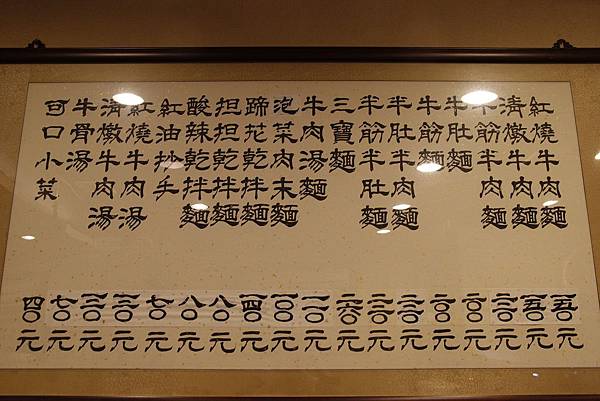 紅燒牛肉麵
元
清燉牛肉麵
元
半筋半肉麵
元
牛肚麵
元
牛筋麵
元
半肚半肉麵
元
半筋半肚麵
元
三寶麵
元
牛肉湯麵
元
泡菜肉末麵
一〇〇元
蹄花乾拌麵
元
担担乾拌麵
八〇元
酸辣乾拌麵
八〇元
紅油抄手
七〇元
紅燒牛肉湯
元
清燉牛肉湯
元
牛骨湯
七〇元
可口小菜
四〇元